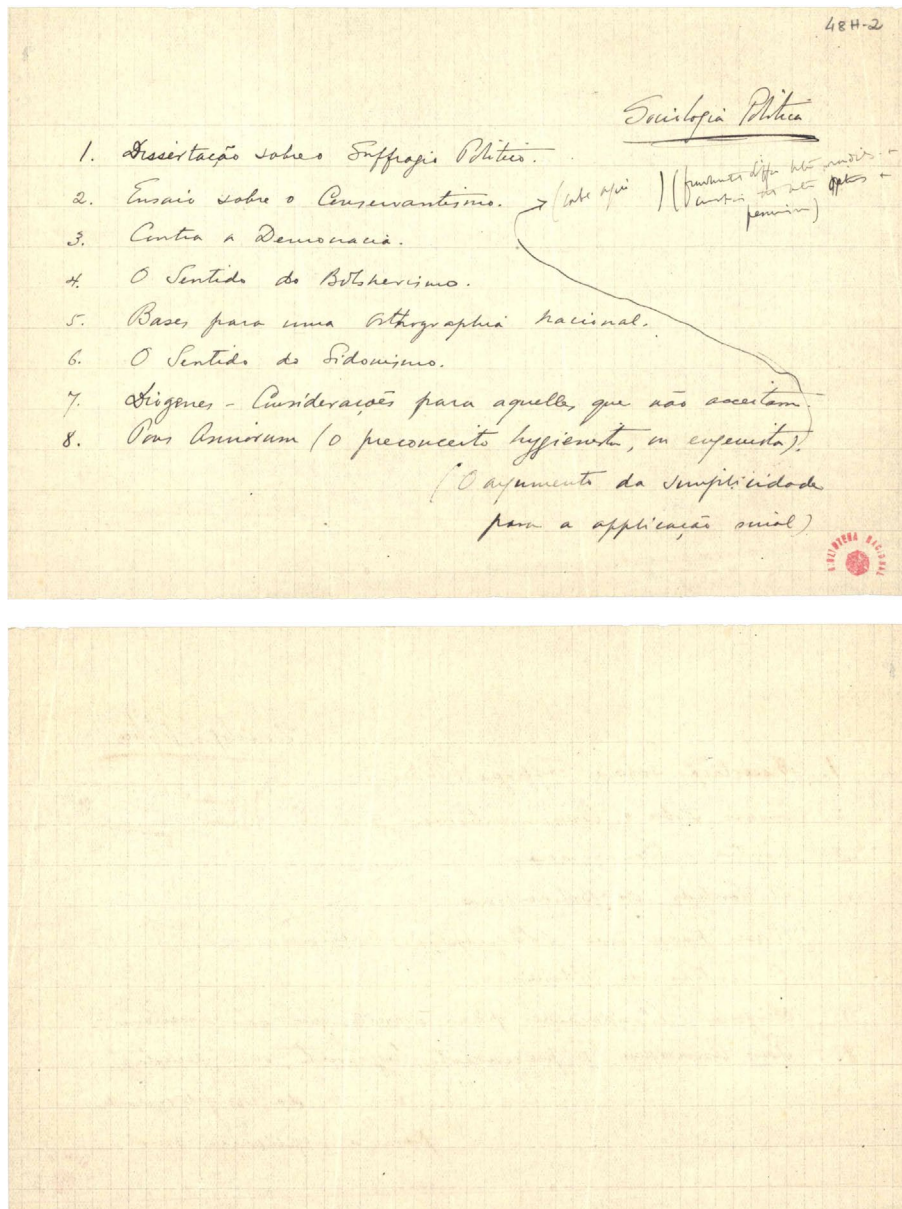 48H-2
Sociologia Politica
1. Dissertação sobre o Suffragio Politico.
2. Ensaio sobre o Conservantismo.
(cabe aqui ) (
3. Contra a Democracia.
4. O Sentido do Bolshevismo.
5. Bases para uma Orthographia Nacional.
6. O Sentido do Sidonismo.
7. Diogenes - Considerações para aquelles que não acceitam.
8. Pons Asinorum (O preconceito hygienista, ou eugenista).
(O argumento da simplicidade
para a applicação social)
BIBLIOTHECA NACIONAL